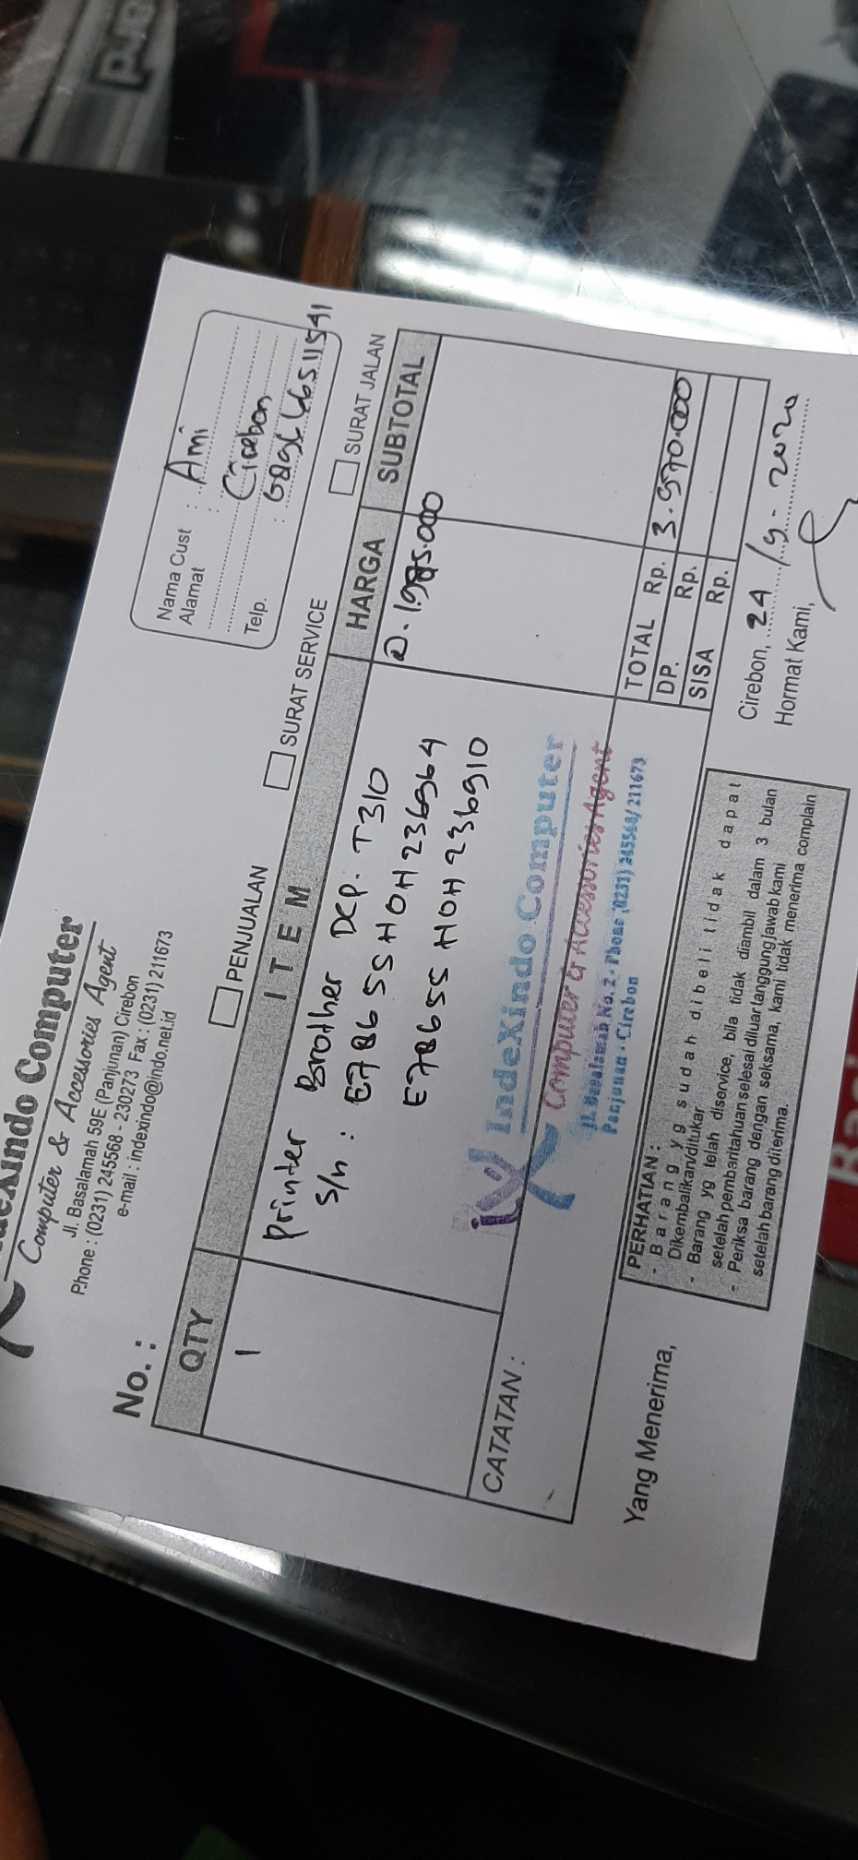 Indo Computer
Computer & Accessories Agent
Jl. Basalamah 59E (Panjunan) Cirebon
Phone : (0231) 245568 - 230273 Fax : (0231) 211673
e-mail : indexindo@indo.net.id
Nama Cust : Ami
Alamat : Cirebon
Telp. :
No. :
PENJUALAN
SURAT SERVICE
SURAT JALAN
QTY ITEM HARGA SUBTOTAL
1 Printer Brother DCP. T310 @. 1.985.000
S/n : E78655H0H236964
E78655H0H236910
CATATAN :
IndeXindo Computer
Computer & Accessories Agent
Jl. Basalamah No. 2 - Phone (0231) 245568/211673
Panjunan - Cirebon
TOTAL Rp. 3.970.000
DP. Rp.
SISA Rp.
Yang Menerima,
PERHATIAN :
- Barang yg sudah dibeli tidak dapat
Dikembalikan/ditukar
- Barang yg telah diservice, bila tidak diambil dalam 3 bulan
setelah pembaritahuan selesai diluar tanggung jawab kami
- Periksa barang dengan seksama, kami tidak menerima complain
setelah barang diterima.
Cirebon, 24 / 9 - 2020
Hormat Kami,